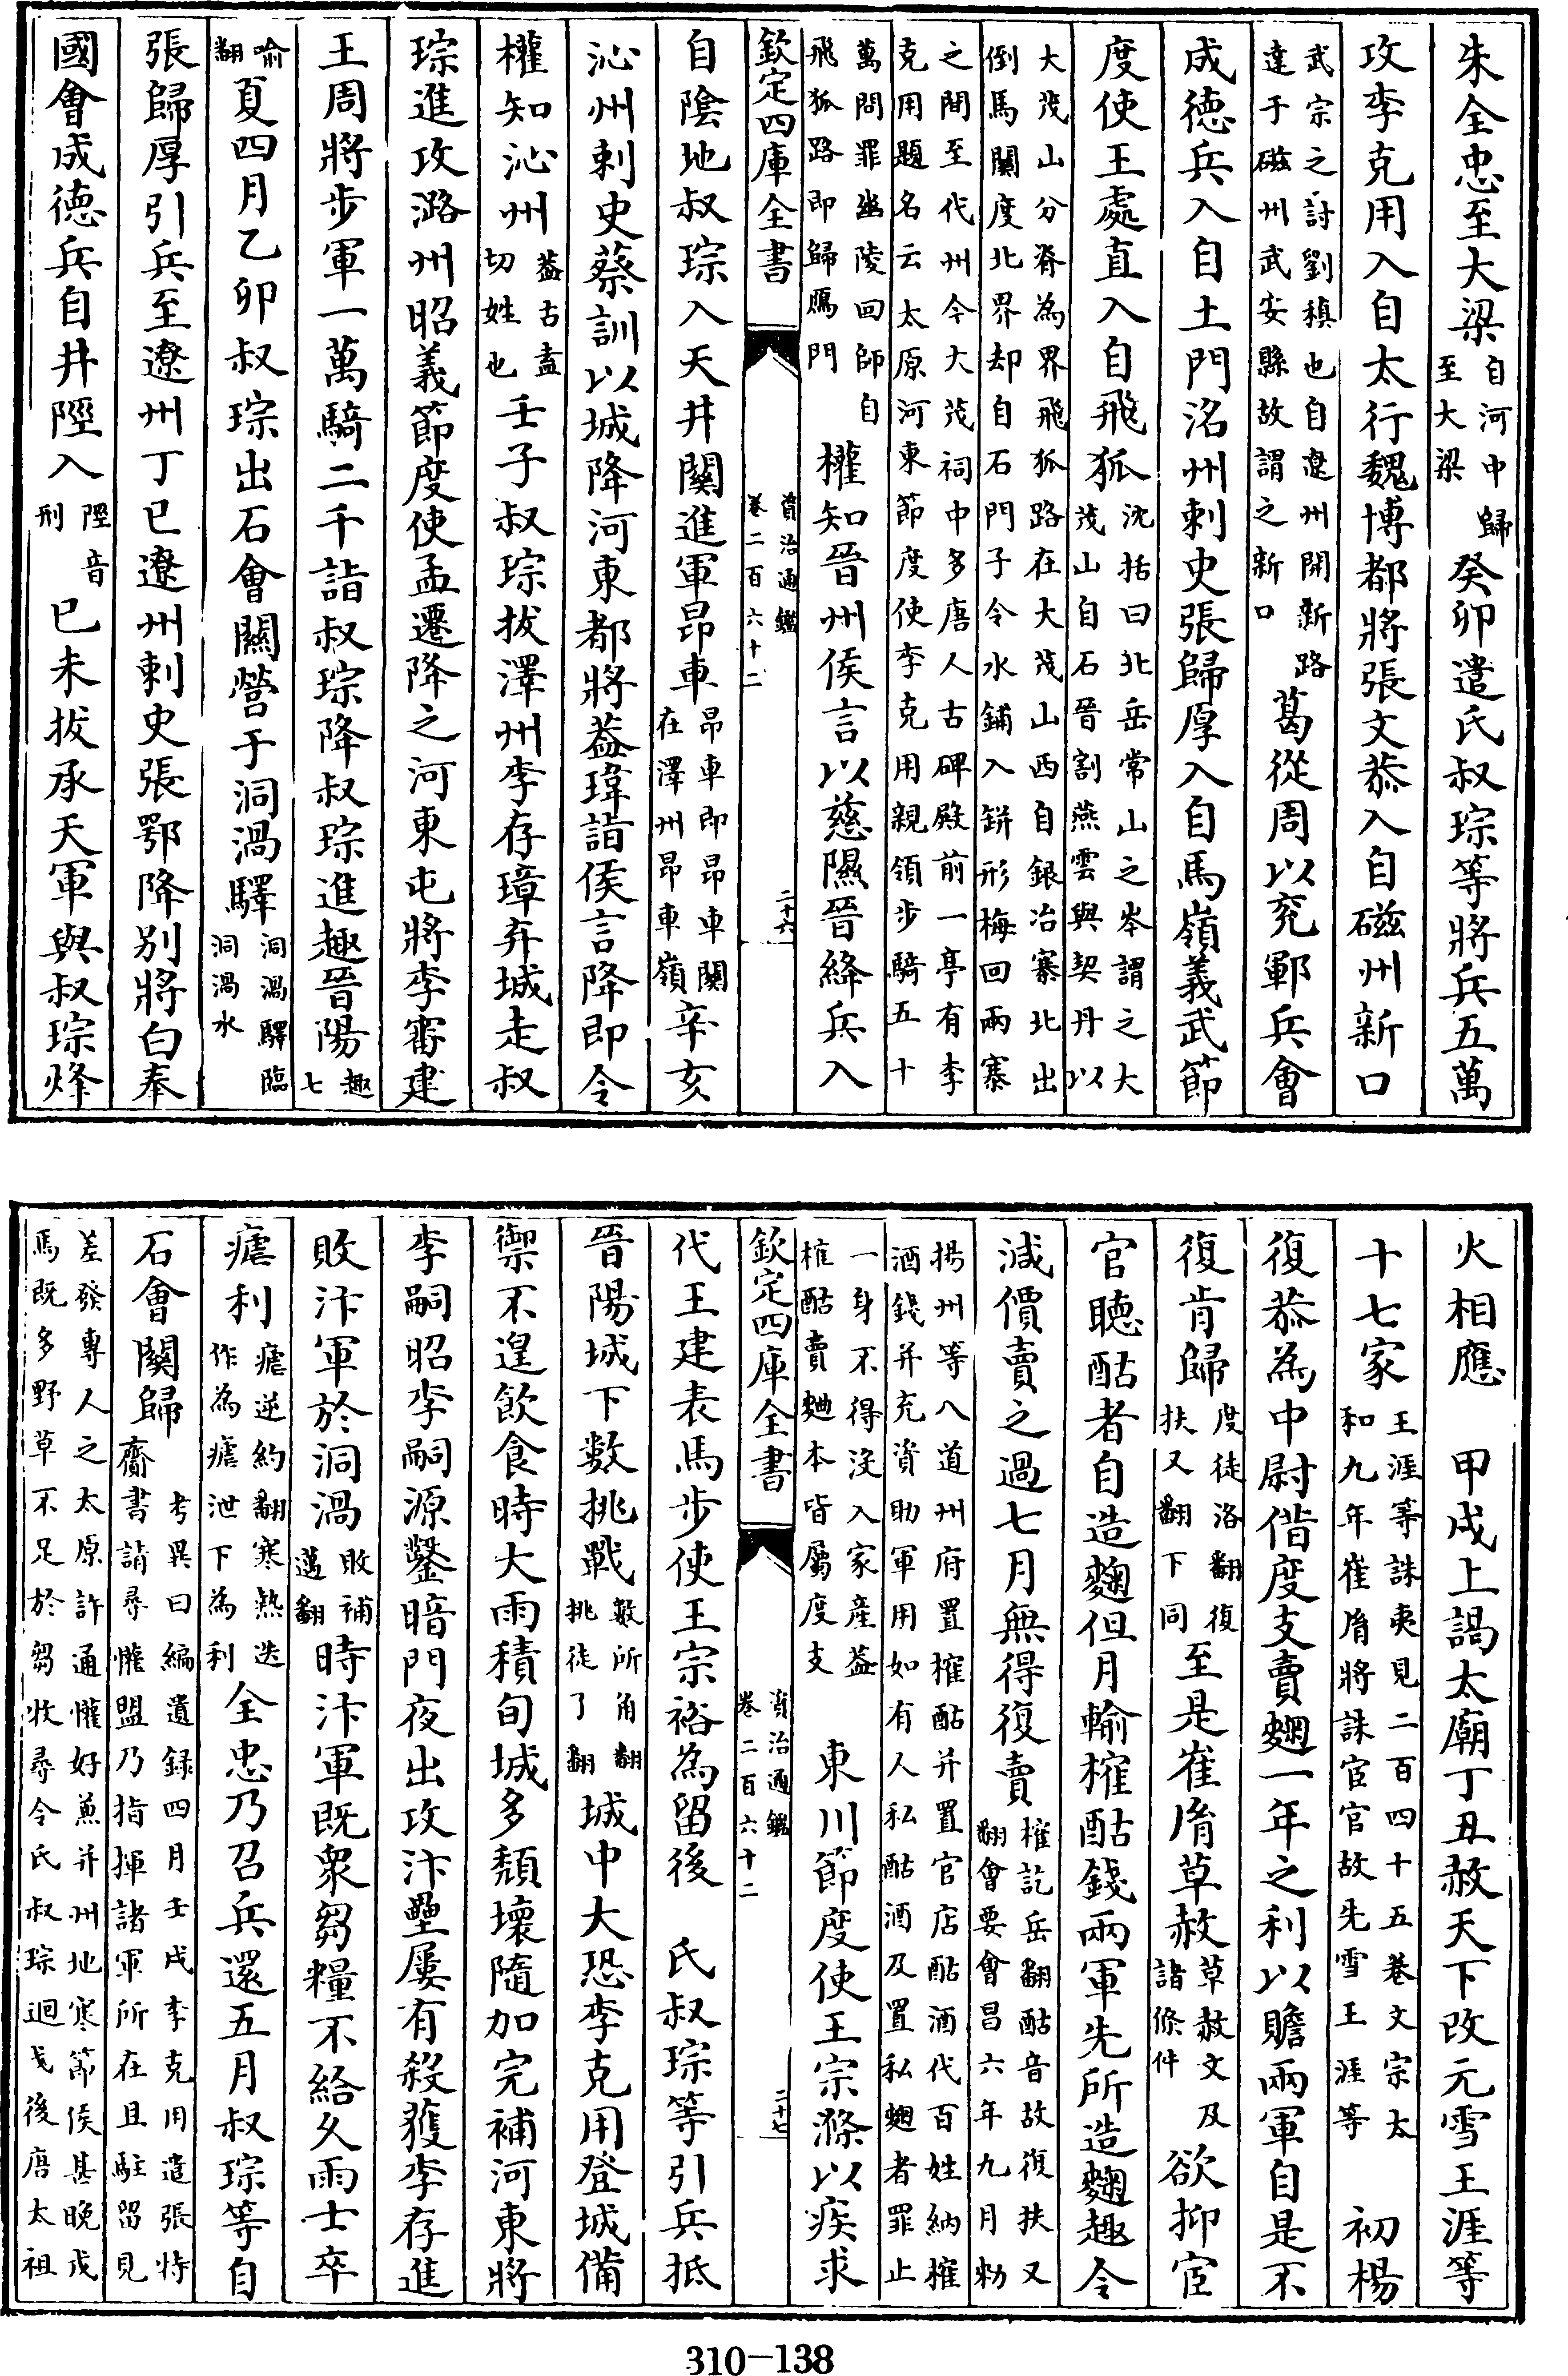 朱全忠至大梁自河中歸至大梁癸卯遣氏叔琮等將兵五萬
攻李克用入自太行魏博都將張文恭入自磁州新口
武宗之討劉稹也自遼州開新路達于磁州武安縣故謂之新口葛從周以兖鄆兵會
成德兵入自土門洺州刺史張歸厚入自馬嶺義武節
度使王處直入自飛狐沈括曰北岳常山之岑謂之大茂山自石晉割燕雲與契丹以
大茂山分脊為界飛狐路在大茂山西自銀冶寨北出倒馬關度北界却自石門子令水鋪入缾形梅回兩寨
之間至代州今大茂祠中多唐人古碑殿前一亭有李克用題名云太原河東節度使李克用親領步騎五十
萬問罪幽陵回師自飛狐路即歸鴈門權知晉州侯言以慈隰晉絳兵入
欽定四庫全書 資治通鑑卷二百六十二 二十六
自陰地叔琮入天井關進軍昂車昂車即昂車關在澤州昂車嶺辛亥
沁州刺史蔡訓以城降河東都將蓋瑋詣侯言降即令
權知沁州蓋古盍切姓也壬子叔琮拔澤州李存璋弃城走叔
琮進攻潞州昭義節度使孟遷降之河東屯將李審建
王周將步軍一萬騎二千詣叔琮降叔琮進趣晉陽趣七
喻翻夏四月乙卯叔琮出石會關營于洞渦驛洞渦驛臨洞渦水
張歸厚引兵至遼州丁巳遼州刺史張鄂降别將白奉
國會成德兵自井陘入陘音刑己未拔承天軍與叔琮烽
火相應 甲戌上謁太廟丁丑赦天下改元雪王涯等
十七家王涯等誅夷見二百四十五卷文宗太和九年崔胤將誅宦官故先雪王涯等 初楊
復恭為中尉借度支賣麴一年之利以贍兩軍自是不
復肯歸度徒洛翻復扶又翻下同至是崔胤草赦草赦文及諸條件欲抑宦
官聽酤者自造麴但月輸榷酤錢兩軍先所造麴趣令
減價賣之過七月無得復賣榷訖岳翻酤音故復扶又翻會要會昌六年九月勑
揚州等八道州府置榷酤并置官店酤酒代百姓納榷酒錢并充資助軍用如有人私酤酒及置私麴者罪止
一身不得沒入家産葢榷酤賣麴本皆屬度支 東川節度使王宗滌以疾求
欽定四庫全書 資治通鑑卷二百六十二 二十七
代王建表馬步使王宗裕為留後 氏叔琮等引兵抵
晉陽城下數挑戰數所角翻挑徒了翻城中大恐李克用登城備
禦不遑飲食時大雨積旬城多頽壞隨加完補河東將
李嗣昭李嗣源鑿暗門夜出攻汴壘屢有殺獲李存進
敗汴軍於洞渦敗補邁翻時汴軍既衆芻糧不給久雨士卒
瘧利瘧逆約翻寒熱迭作為瘧泄下為利全忠乃召兵還五月叔琮等自
石會關歸考異曰編遺録四月壬戌李克用遣張特齎書請尋懽盟乃指揮諸軍所在且駐留見
差發專人之太原許通懽好兼并州地寒節侯甚晚戎馬既多野草不足於芻牧尋令氏叔琮迴戈後唐太祖
310-138